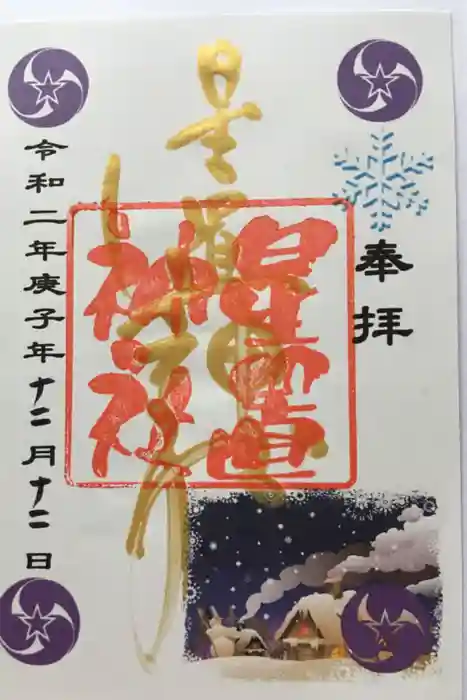 奉拝
星置神社
星置神社
令和二年庚子年十二月十二日